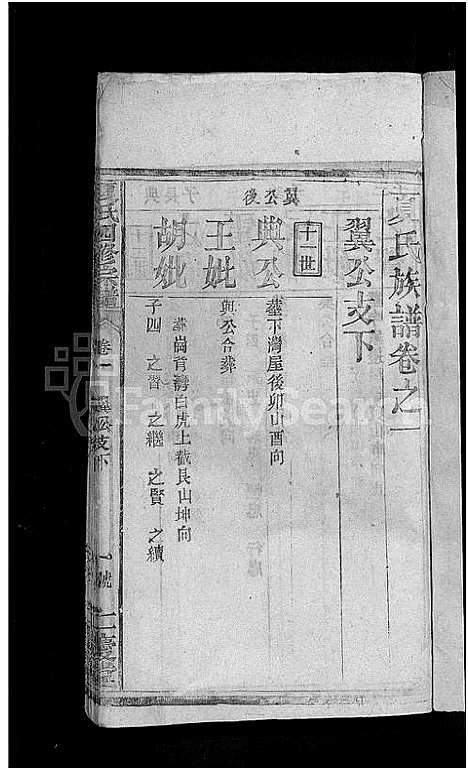 夏氏族譜卷之一
翼公支下
翼公後
子長興
十一世
典公
葬下灣屋後卯山酉向
王妣
與公合葬
胡妣
葬崗背灣白虎上截艮山坤向
子四 之晋 之繼 之賢 之續
夏氏四修宗譜
卷一
翼公支下
一號
FamilySearch